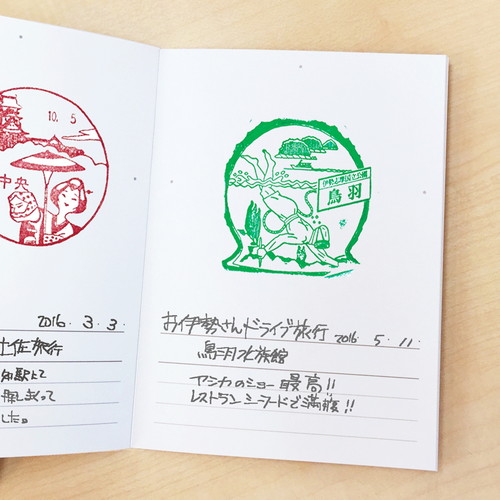 10.5
中央
2016. 3. 3.
土佐旅行
した。
伊勢志摩国立公園
鳥羽
お伊勢さんドライブ旅行 2016. 5. 11.
鳥羽水族館
アシカのショー 最高!!
レストラン シーフードで満腹!!